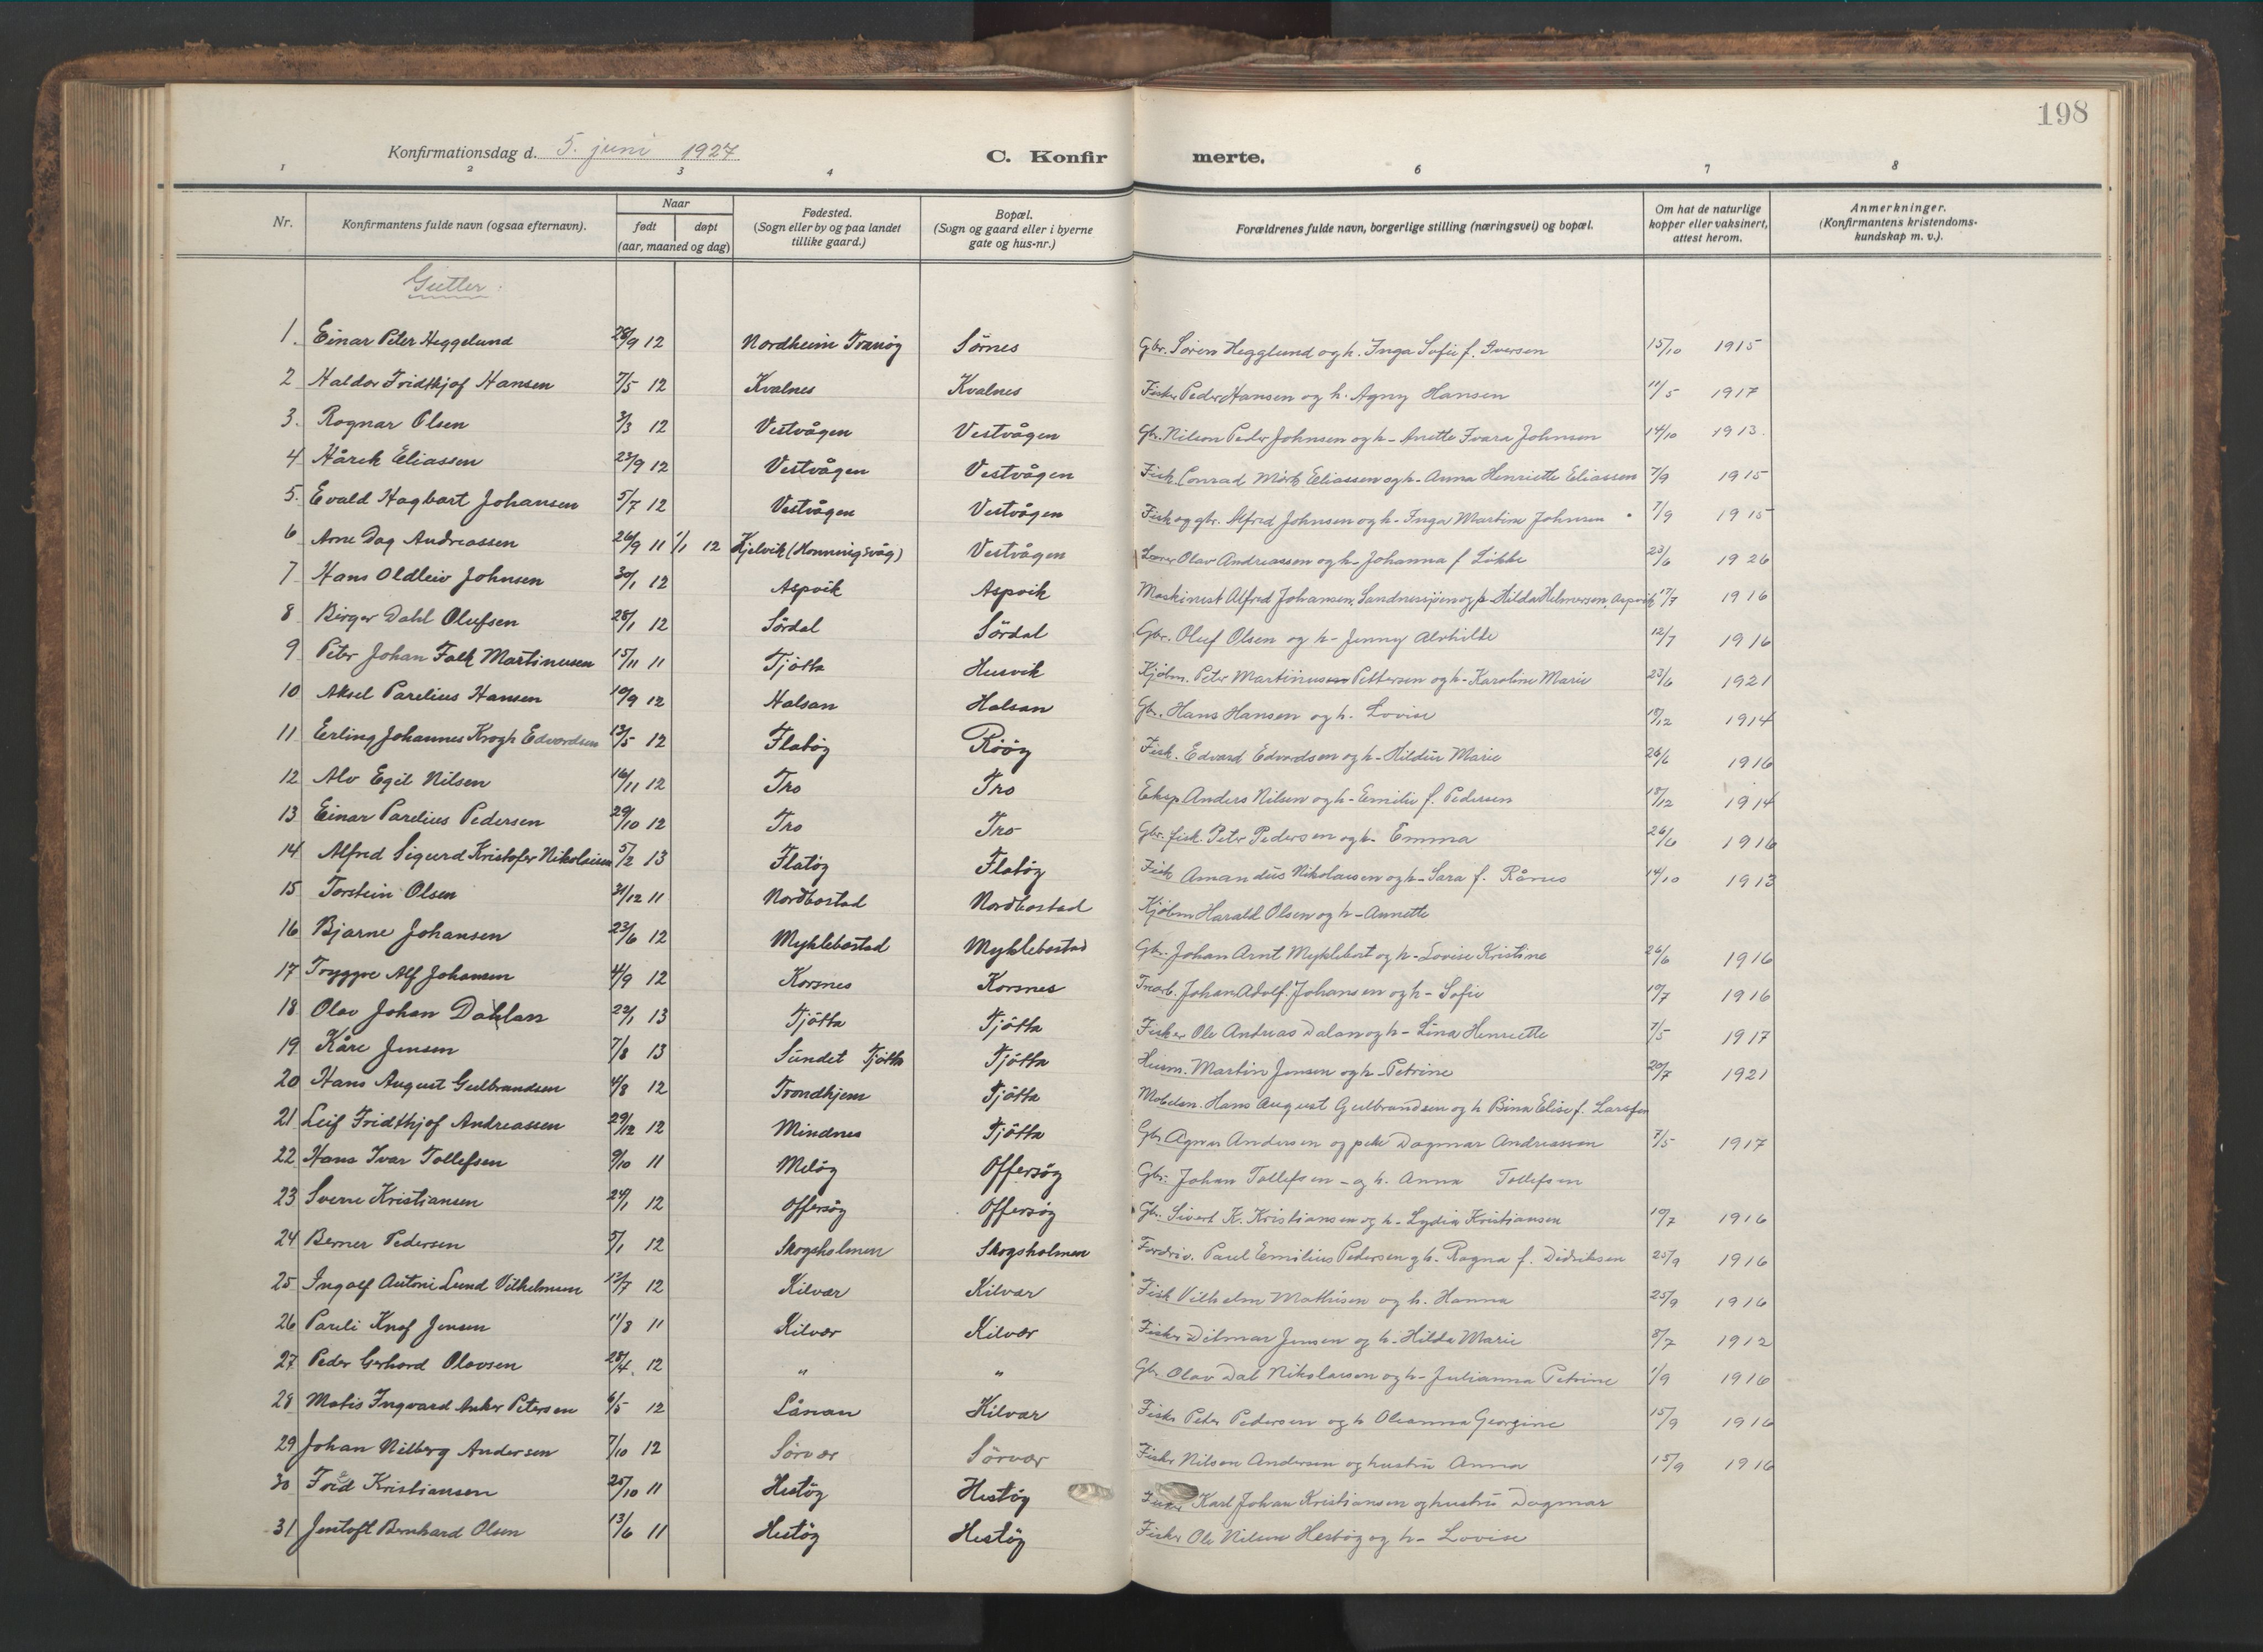 198
Konfirmationsdag d. 5. juni 1927
C. Konfirmerte.
1 2 3 4 6 7 8
Nr. Konfirmantens fulde navn (ogsaa efternavn). Naar født døpt (aar, maaned og dag) Fødested. (Sogn eller by og paa landet tillike gaard.) Bopæl. (Sogn og gaard eller i byerne gate og hus-nr.) Forældrenes fulde navn, borgerlige stilling (næringsvei) og bopæl. Om hat de naturlige kopper eller vaksinert, attest herom. Anmerkninger. (Konfirmantens kristendoms-kundskap m. v.).
Gutter:
1. Einar Peter Heggelund 28/9 12 Nordheim Tranöy Sörnes Gbr. Sören Hegglund og h. Inga Sofie f. Iversen 15/10 1915
2 Haldor Fridthjof Hansen 7/5 12 Kvalnes Kvalnes Fisker Peder Hansen og h. Agny Hansen 11/5 1917
3. Ragnar Olsen 3/3 12 Vestvågen Vestvågen Gbr. Nilson Peder Johnsen og h- Anette Ivara Johnsen 14/10 1913.
4 Hårek Eliassen 23/9 12 Vestvågen Vestvågen Fisk. Conrad Mörk Eliassen og h- Anna Henriette Eliassen 7/9 1915
5. Evald Hagbart Johansen 5/7 12 Vestvågen Vestvågen Fisk og gbr. Alfred Johnsen og h- Inga Martine Johnsen 7/9 1915
6 Arne Dag Andreassen 26/9 11 1/1 12 Kjelvik (Honningsvåg) Vestvågen Lærer Olav Andreassen og h- Johanna f Lökke 23/6 1926
7 Hans Oldleiv Johnsen 30/1 12 Aspvik Aspvik Maskinist Alfred Johansen, Sandnessjöen og p. Hilda Helmersen, Aspvik 17/7 1916
8 Birger Dahl Olufsen 28/1 12 Sördal Sördal Gbr. Oluf Olsen og h- Jenny Alvhilde 12/7 1916
9 Peter Johan Falk Martinusen 15/11 11 Tjötta Husvik Kjöbm. Peter Martinussen Pettersen og h- Karoline Marie 23/6 1921
10 Aksel Parelius Hansen 10/9 12 Halsan Halsan Gbr. Hans Hansen og h. Lovise 18/12 1914
11 Erling Johannes Krogh Edvardsen 13/5 12 Flatöy Rööy Fisk. Edvard Edvardsen og h- Hildür Marie 26/6 1916
12 Alv Egil Nilsen 16/11 12 Tro Tro Eksp Anders Nilsen og h- Emilie f. Pedersen 18/12 1914
13 Einar Parelius Pedersen 29/10 12 Tro Tro Gbr. fisk. Peter Pedersen og h- Emma 26/6 1916
14 Alfred Sigurd Kristofer Nikolaisen 5/2 13 Flatöy Flatöy Fisk Amandüs Nikolaisen og h- Sara f. Rånes 14/10 1913
15 Torstein Olsen 31/12 11 Nordbostad Nordbostad Kjöbm Harald Olsen og h- Annette
16 Bjarne Johansen 23/6 12 Myklebostad Myklebostad Gbr. Johan Arnt Myklebost og h- Lovise Kristine 26/6 1916
17 Tryggve Alf Johansen 4/9 12 Korsnes Korsnes Johan Adolf Johansen og h- Sofie 10/7 1916
18 Olav Johan Dahlan 22/1 13 Tjötta Tjötta Fisker Ole Andreas Dalan og h- Lina Henriette 7/5 1917
19 Kåre Jensen 7/3 13 Sundet Tjötta Tjötta Husm. Martin Jensen og h- Petrine 20/7 1921
20 Hans August Gulbrandsen 4/8 12 Trondhjem Tjötta Hans August Gulbrandsen og h Bina Elise f. Larsen
21 Leif Fridthjof Andreassen 29/12 12 Mindnes Tjötta Gbr Agner Andersen og pike Dagmar Andreassen 7/5 1917
22 Hans Ivar Tollefsen 9/10 11 Melöy Offersöy Gbr. Johan Tollefsen - og h. Anna Tollefsen
23 Sverre Kristiansen 24/1 12 Offersöy Offersöy Gbr. Sivert K. Kristiansen og h- Lydia Kristiansen 10/7 1916
24 Berner Pedersen 5/1 12 Skogsholmen Skogsholmen Fordriv. Paul Emilius Pedersen og h- Ragna f. Didriksen 25/9 1916
25 Ingolf Antoni Lund Vilhelmsen 12/7 12 Kilvær Kilvær Fisk Vilhelm Mathisen og h. Hanna 25/9 1916
26 Pareli Knof Jensen 11/3 11 Kilvær Kilvær Fisker Ditmar Jensen og h- Hilda Marie 8/7 1912
27 Peder Gerhard Olavsen 28/4. 12 " " Gbr Olav Dal Nikolaisen og h- Julianna Petrine 1/9 1916
28 Matis Ingvard Anker Petersen 6/5 12 Lånan Kilvær Fisker Peder Pedersen og h Oleanna Georgine 15/9 1916
29 Johan Nilberg Andersen 7/10 12 Sörvær Sörvær Fisker Nilson Andersen og hustru Anna 15/9 1916
30 Kristiansen 25/10 11 Hestöy Hestöy Karl Johan Kristiansen og hustru Dagmar
31 Jentoft Bernhard Olsen 13/6 11 Hestöy Hestöy Fisker Ole Nilsen Hestöy og h- Lovise